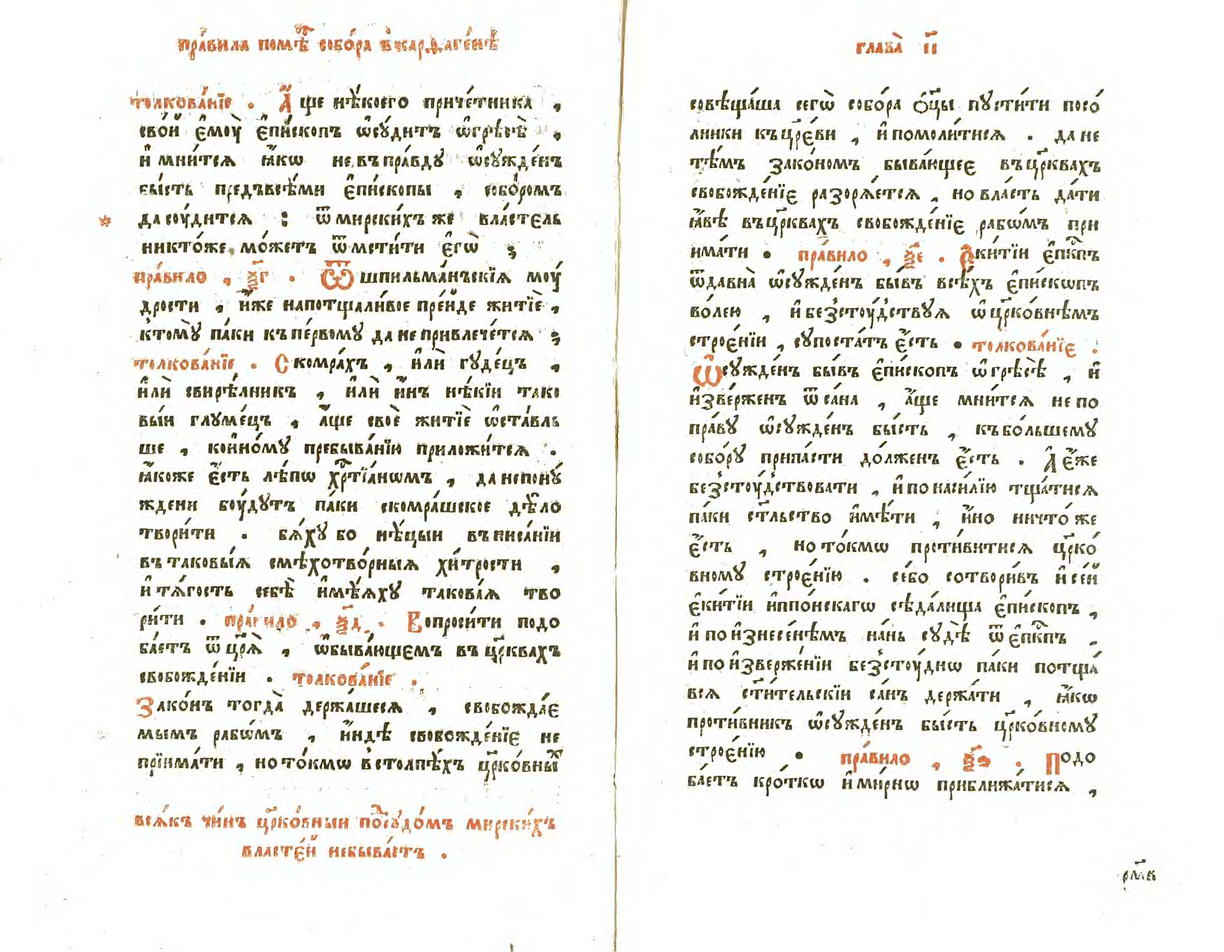 пра́вила поме́ст собо́ра въкарѳаге́нѣ
толкова́нїе . А҆́ ще нѣ́коего приче́тника ,
сво́й є҆моу̀ є҆пи́скопъ ѡ҆су́дитъ ѡ҆грѣсѣ̀ ,
и҆ мни́тся ꙗ҆́кѡ не въ пра́вду ѡ҆сужде́нъ
бы́сть предъвсѣ́ми є҆пи́скопы , собо́ромъ
да соу́дится : ѿ мирски́хъ же вла́стель
никто́же мо́жетъ ѿмсти́ти є҆го̀ ;
пра́вило , ѯ҃г . Ѿ шпильма́нъскїѧ моу́
дрости , и҆́же напотщали́вое пре́йде житїѐ ,
ктомꙋ̀ па́ки къ пе́рвому да не привлече́тся ;
толкова́нїе . С комра́хъ , и҆лѝ гуде́цъ ,
и҆лѝ свирѣ́лникъ , и҆лѝ и҆́нъ нѣ́кїи тако
вы́и глуме́цъ , а҆́ще своѐ житїѐ ѡ҆ста́вль
ше , коино́му пребыва́нїю приложи́тся .
ꙗ҆́коже є҆́сть лѣ́пѡ хр҃тїа́нѡмъ , да непону́
ждени бу́дутъ па́ки скомра́шское дѣ́ло
твори́ти . бѧ́ху бо нѣ́цыи въписа́нїи
въ таковы́ѧ смѣхотво́рныѧ хи́трости ,
и҆ тѧ́гость себѣ̀ и҆мѣ́ѧху такова́ѧ тво
ри́ти . пра́вило , ѯ҃д . Вопроси́ти подо
ба́етъ ѿ цр҃ѧ̀ , ѡ҆быва́ющемъ въ цр҃квахъ
свобожде́нїи . толкова́нїе .
Зако́нъ тогда̀ держа́шесѧ , свобожда́е
мымъ рабѡ́мъ , и҆́ндѣ свобожде́нїе не
прїима́ти , но то́кмѡ в столпѣ́хъ цр҃ко́вных
всѧ́къ чи́нъ цр҃ко́вныи по́дсудомъ мирски́хъ
власте́й небыва́етъ .
глава̀ і҃і
совѣща́ша сегѡ̀ собо́ра ѻ҆ц҃ы̀ пусти́ти посо́
лники къ цр҃е́ви , и҆ помоли́тисѧ . да не
тѣ́мъ зако́номъ быва́ющее въ цр҃квахъ
свобожде́нїе разорѧ́етсѧ , но вла́сть да́ти
ꙗ҆́вѣ въ цр҃квахъ свобожде́нїе рабѡ́мъ при
има́ти . пра́вило , ѯ҃е . Екитїи є҆пк҃пъ
ѿда́вна ѡ҆сужде́нъ бы́въ всѣ́хъ є҆пи́скѡпъ
во́лею , и҆ безсту́дствуѧ ѡ҆ цр҃ко́внѣмъ
строе́нїи , супоста́тъ є҆́сть . толкова́нїе :
Ѡ҆сужде́нъ бы́въ є҆пи́скопъ ѡ҆грѣсѣ̀ , и҆
и҆зве́рженъ ѿ са́на , а҆́ще мни́тся не по
пра́ву ѡ҆сужде́нъ бы́сть , къ бо́льшему
собо́ру припа́сти до́лженъ є҆́сть . А҆ є҆́же
безсту́дствовати , и҆ по наси́лїю тща́тисѧ
па́ки ст҃льство и҆мѣ́ти , и҆́но ничто́ же
є҆́сть , но то́кмѡ проти́витисѧ цр҃ко́
вному строе́нїю . се́бо сотвори́въ и҆ се́й
є҆ки́тїи и҆ппо́нскагѡ сѣда́лища є҆пи́скопъ ,
и҆ по и҆знесе́нѣмъ на́нь судѣ̀ ѿ є҆пк҃пъ ,
и҆ по и҆зверже́нїи безсту́днѡ па́ки потща́
всѧ ст҃и́тельскїи са́нъ держа́ти , ꙗ҆́кѡ
проти́вникъ ѡ҆сужде́нъ бы́сть цр҃ко́вному
строе́нїю . пра́вило , ѯ҃ѕ . Подо
ба́етъ кро́ткѡ и҆ ми́рнѡ приближа́тисѧ ,
рм҃в